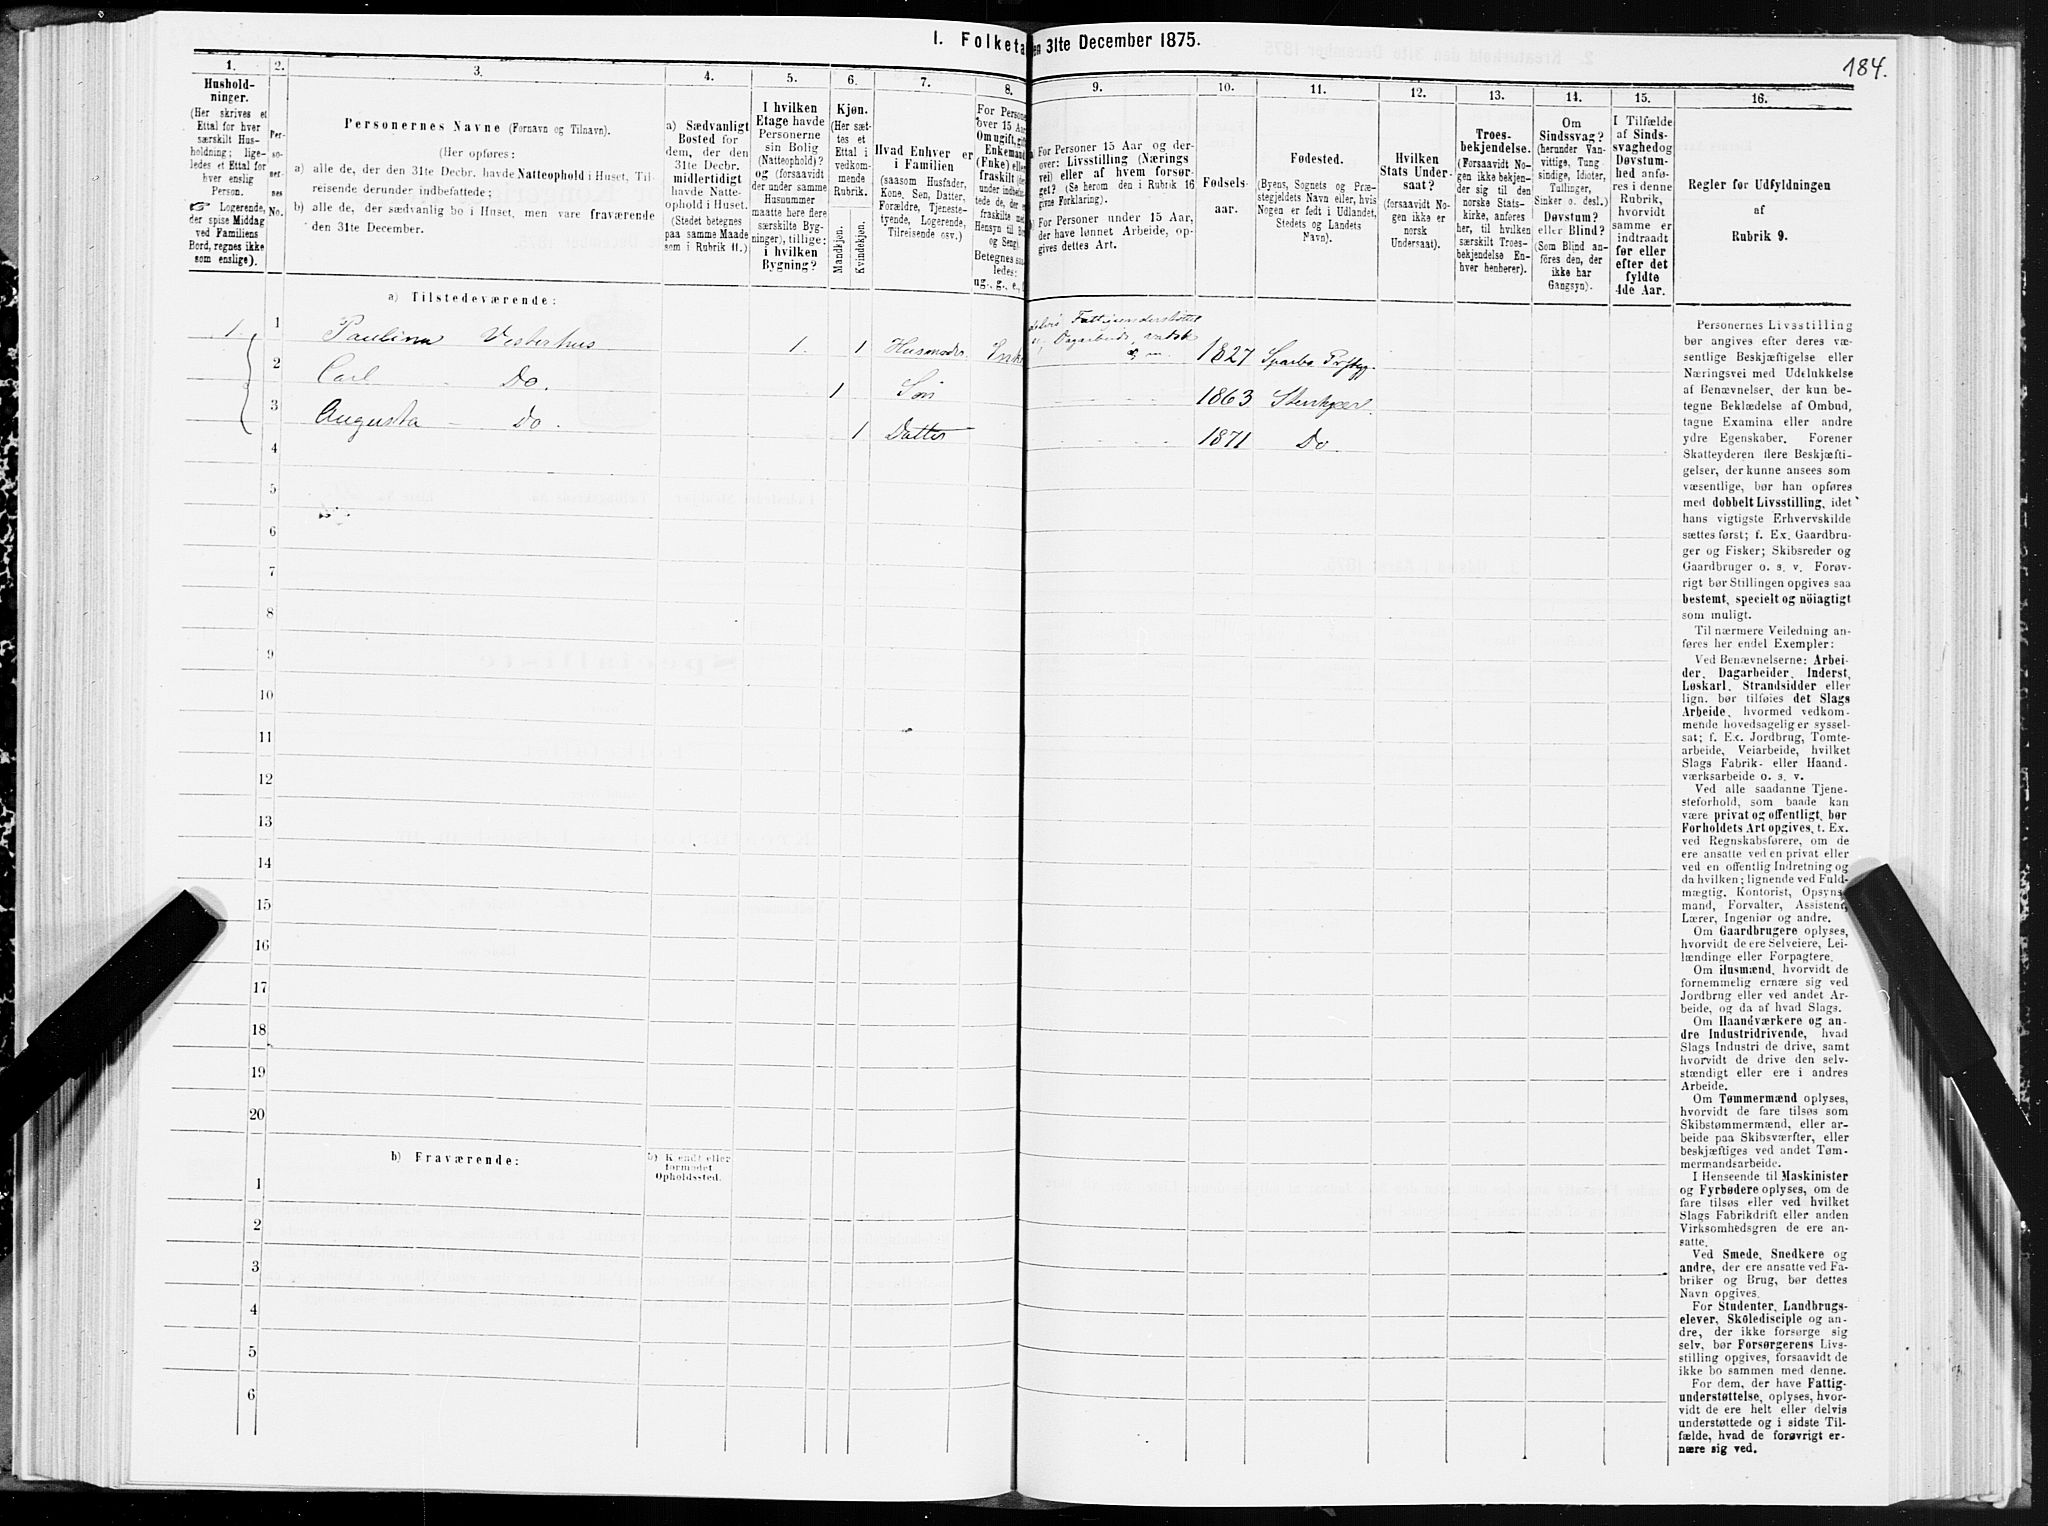 1. Folketa en 31te December 1875.
184.
1.
Hushold-
ninger.
(Her skrives et
Ettal for hver
særskilt Hus-
holdning; lige-
ledes et Ettal for
hver enslig
Person.
☞ Logerende,
der spise Middag
ved Familiens
Bord, regnes ikke
som enslige).
2.
Per-
so-
ner-
nes
No.
3.
Personernes Navne (Fornavn og Tilnavn).
(Her opføres:
a) alle de, der den 31te Decbr. havde Natteophold i Huset, Til-
reisende derunder indbefattede;
b) alle de, der sædvanlig bo i Huset, men vare fraværende
den 31te December.
4.
a) Sædvanligt
Bosted for
dem, der den
31te Decbr.
midlertidigt
havde Natte-
ophold i Huset.
(Stedet betegnes
paa samme Maade
som i Rubrik 11.)
5.
I hvilken
Etage havde
Personerne
sin Bolig
(Natteophold)?
og (forsaavidt
der under samme
Husnummer
maatte høre flere
særskilte Byg-
ninger), tillige:
i hvilken
Bygning?
6.
Kjøn.
(Her sæt-
tes et
Ettal i
vedkom-
mende
Rubrik.
Mandkjøn.
Kvindekjøn.
7.
Hvad Enhver er
i Familien
(saasom Husfader,
Kone, Søn, Datter,
Forældre, Tjeneste-
tyende, Logerende,
Tilreisende osv.)
8.
For Persone
over 15 Aar
Om ugift, gift
Enkemand
(Enke) eller
fraskilt
Betegnes saa-
ledes:
ug., g., e.,
9.
a) For Personer 15 Aar og der-
over: Livsstilling (Nærings
vei) eller af hvem forsør-
get? (Se herom den i Rubrik 16
givne Forklaring).
b) For Personer under 15 Aar,
der have lønnet Arbeide, op-
gives dettes Art.
10.
Fødsels-
aar.
11.
Fødested.
(Byens, Sognets og Præ-
stegjeldets Navn eller, hvis
Nogen er født i Udlandet,
Stedets og Landets
Navn).
12.
Hvilken
Stats Under-
saat?
(forsaavidt No-
gen ikke er
norsk
Undersaat).
13.
Troes-
bekjendelse.
(Forsaavidt No-
gen ikke bekjen-
der sig til den
norske Stats-
kirke, anføres
her, til hvilken
særskilt Troes-
bekjendelse En-
hver henhører).
14.
Om
Sindssvag?
(herunder Van-
vittige, Tung
sindige, Idioter,
Tullinger,
Sinker o. desl.)
Døvstum?
eller Blind?
(Som Blind an-
føres den, der
ikke har
Gangsyn).
15.
I Tilfælde
af Sinds-
svaghed og
Døvstum-
hed anfø-
res i denne
Rubrik,
hvorvidt
samme er
indtraadt
før eller
efter det
fyldte
4de Aar.
16.
Regler før Udfyldningen
af
Rubrik 9.
a) Tilstedeværende:
1 1 Paulina Vesterhus 1. 1 Husmoder Enke delvis Fattigunderstøttet
1827 Sparbo Prstgj.
2 Carl Do. 1 Søn 1863 Stenkjær.
3 Augusta Do. 1 Datter 1871 Do
4
5
6
7
8
9
10
11
12
13
14
15
16
17
18
19
20
b) Fraværende:
b) Kjendt eller
formodet
Opholdssted.
1
2
3
4
5
6
Personernes Livsstilling
bør angives efter deres væ-
sentlige Beskjæftigelse eller
Næringsvei med Udelukkelse
af Benævnelser, der kun be-
tegne Beklædelse af Ombud,
tagne Examina eller andre
ydre Egenskaber. Forener
Skatteyderen flere Beskjæfti-
gelser, der kunne ansees som
væsentlige, bør han opføres
med dobbelt Livsstilling, idet
hans vigtigste Erhvervskilde
sættes først; f. Ex. Gaardbru-
ger og Fisker; Skibsreder og
Gaardbruger o. s. v. Forøv-
rigt bør Stillingen opgives saa
bestemt, specielt og nöiagtigt
som muligt.
Til nærmere Veiledning an-
føres her endel Exempler:
Ved Benævnelserne: Arbei-
der, Dagarbeider, Inderst,
Løskarl, Strandsidder eller
lign. bør tilføies det Slags
Arbeide, hvormed vedkom-
mende hovedsagelig er syssel-
sat; f. Ex. Jordbrug, Tomte-
arbeide, Veiarbeide, hvilket
Slags Fabrik- eller Haand-
værksarbeide o. s. v.
Ved alle saadanne Tjene-
steforhold, som baade kan
være privat og offentligt, bør
Forholdets Art opgives, t. Ex.
ved Regnskabsførere, om de
ere ansatte ved en privat eller
ved en offentlig Indretning og
da hvilken; lignende ved Fuld-
mægtig, Kontorist, Opsyns-
mand, Forvalter, Assistent,
Lærer, Ingeniør og andre.
Om Gaardbrugere oplyses,
hvorvidt de ere Selveiere, Lei-
lændinge eller Forpagtere.
Om Husmænd, hvorvidt de
fornemmelig ernære sig ved
Jordbrug eller ved andet Ar-
beide, og da af hvad Slags.
Om Haandværkere og an-
dre Industridrivende, hvad
Slags Industri de drive, samt
hvorvidt de drive den selv-
stændigt eller ere i andres
Arbeide.
Om Tømmermænd oplyses,
hvorvidt de fare tilsøs som
Skibstømmermænd, eller ar-
beide paa Skibsværfter, eller
beskjæftiges ved andet Tøm-
mermandsarbeide.
I Henseende til Maskinister
og Fyrbødere oplyses, om de
fare tilsøs eller ved hvilket
Slags Fabrikdrift eller anden
Virksomhedsgren de ere an-
satte.
Ved Smede, Snedkere og
andre, der ere ansatte ved Fa-
briker og Brug, bør dettes
Navn opgives.
For Studenter, Landbrugs-
elever, Skôledisciple og an-
dre, der ikke forsørge sig
selv, bør Forsørgerens Livs-
stilling opgives, forsaavidt de
ikke bo sammen med denne.
For dem, der have Fattig-
understøttelse, oplyses, hvor-
vidt de ere helt eller delvis
understøttede og i sidste Til-
fælde, hvad de forøvrigt er-
nære sig ved.